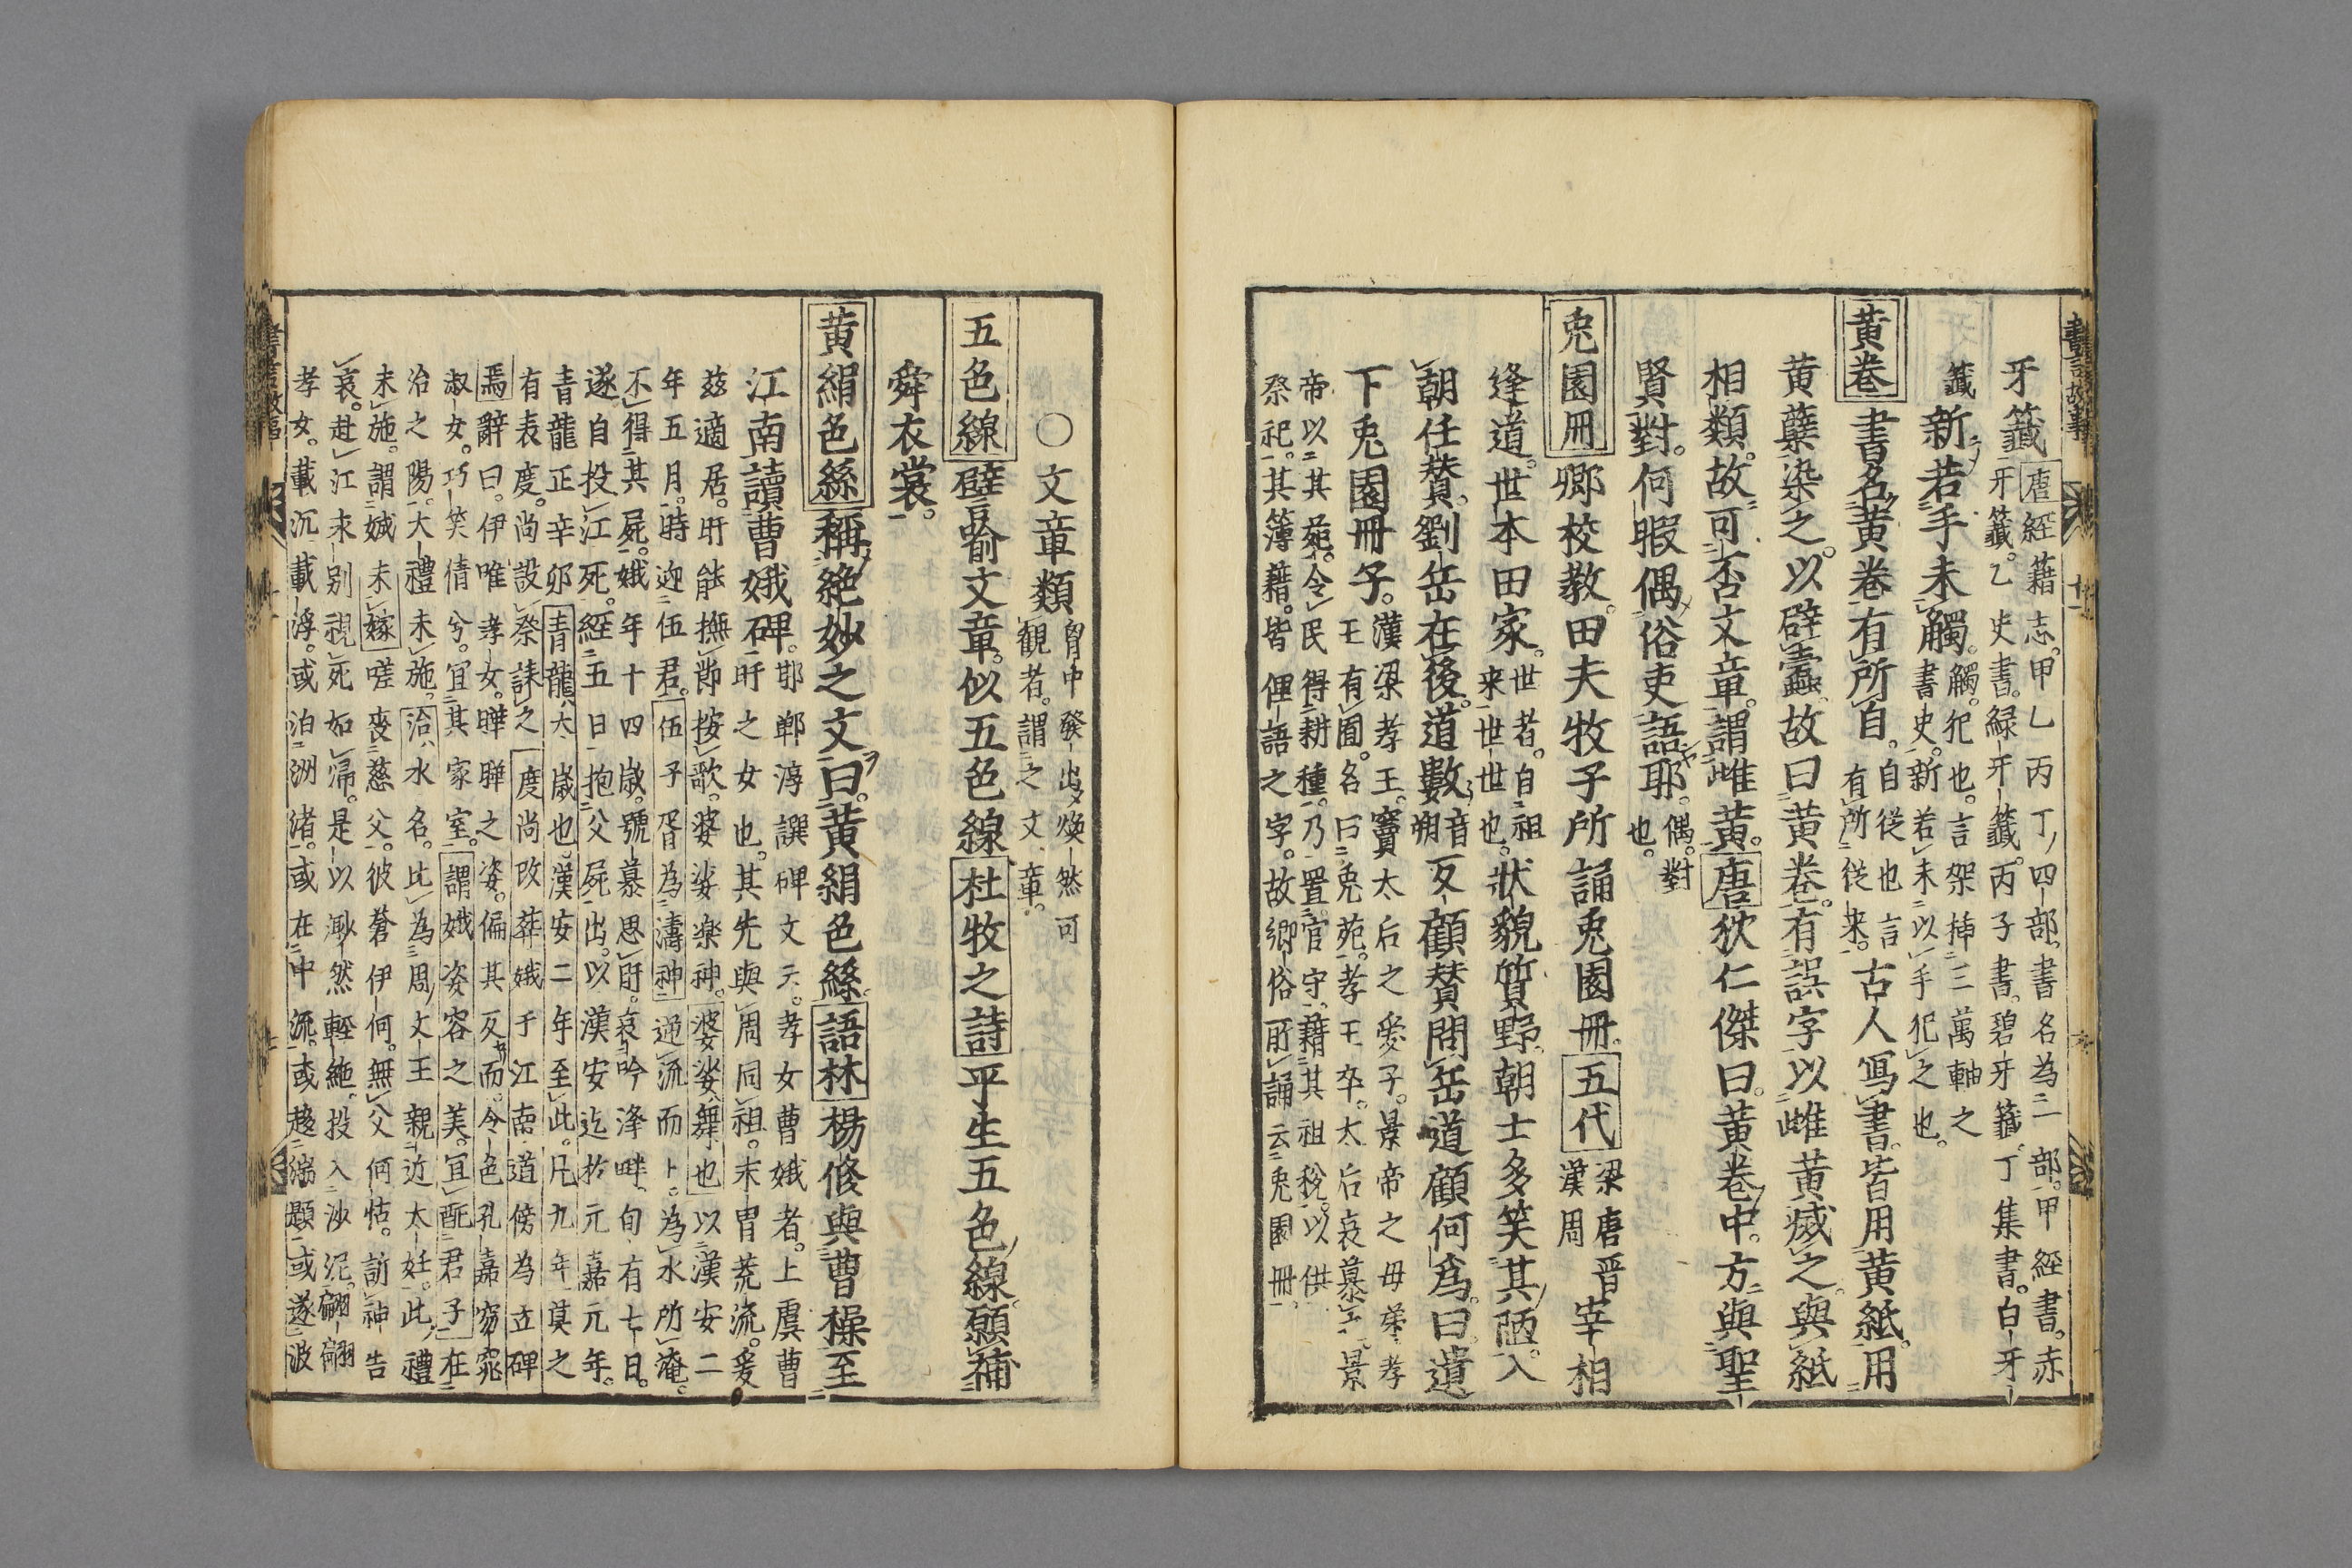 牙籤唐經籍志甲乙丙丁四部書名為二部甲經書赤
牙籤乙史書緑牙籤丙子書碧牙籤丁集書白牙
籤新若手未觸觸犯也言架挿三萬軸之
書史新若未以手犯之也
黄卷書名黄卷有所自自従也言
有所従来古人寫書皆用黄紙用
黄蘗染之以辟蠹故曰黄卷有誤字以雌黄滅之與紙
相類故可否文章謂雌黄唐狄仁傑曰黄卷中方與聖
賢對何暇偶俗吏語耶偶對
也
兎園冊郷校教田夫牧子所誦兎園冊五代梁唐晋
漢周宰相
逢道世本田家世者自祖
来世世也状貌質野朝士多笑其陋入
朝任賛劉岳在後道數音
朔反顧賛問岳道顧何爲曰遺
下兎園冊子漢梁孝王竇太后之愛子景帝之毋弟孝
王有囿名曰兎苑孝王卒太后哀慕景
帝以其苑令民得耕種乃置官守籍其祖税以供
祭祀其簿籍皆俚語之字故郷俗所誦云兎園冊
○文章類胷中發出煥然可
観者謂之文章
五色線譬喻文章似五色線杜牧之詩平生五色線願補
舜衣裳
黄絹色絲稱絶妙之文曰黄絹色絲語林楊修與曹操至
江南讀曹娥碑邯鄲淳譔碑文云孝女曹娥者上虞曹
盱之女也其先與周同祖末胄荒流爰
茲適居盱能撫節按歌婆娑楽神婆娑舞也以漢安二
年五月時迎伍君伍子胥為濤神逆流而上為水所淹
不得其屍娥年十四歳號慕思盱哀吟澤畔旬有七日
遂自投江死經五日抱父屍出以漢安迄於元嘉元年
青龍正辛卯青龍大歳也漢安二年至此凡九年莫之
有表度尚設祭誄之度尚改葬娥于江南道傍為立碑
焉辭曰伊唯孝女曄曄之姿偏其反而令色孔嘉窈窕
淑女巧笑倩兮宜其家室謂娥姿容之美宜配君子在
洽之陽大禮未施洽水名比為周文王親迎太姙此禮
未施謂娥未嫁嗟喪慈父彼蒼伊何無父何怙訴神告
哀赴江永別視死如帰是以渺然輕絶投入沙泥翩翩
孝女載沉載浮或泊洲渚或在中流或趨湍瀬或遂波